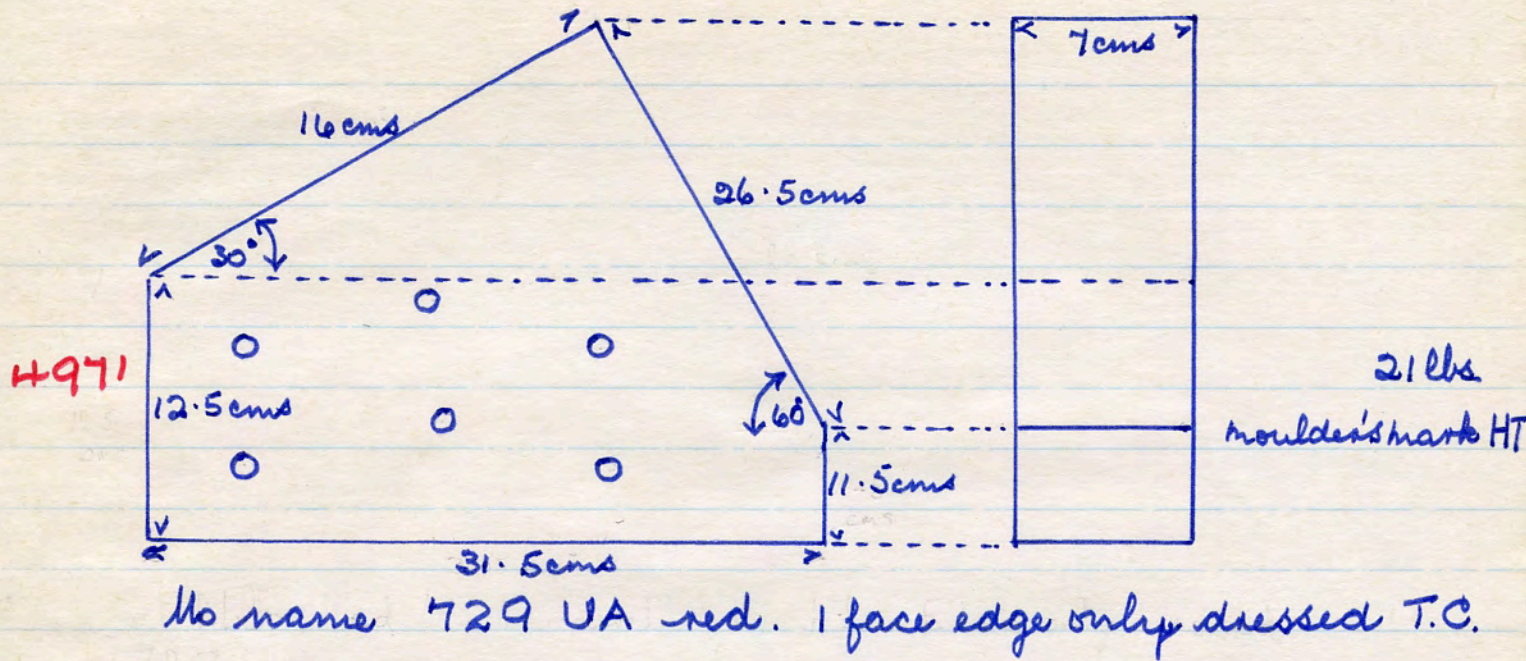 7cms
16cms
26.5cms
30°
4971
12.5cms
60°
21 lbs
moulder's mark HT
11.5cms
31.5cms
No name 729 UA red. 1 face edge only dressed T.C.